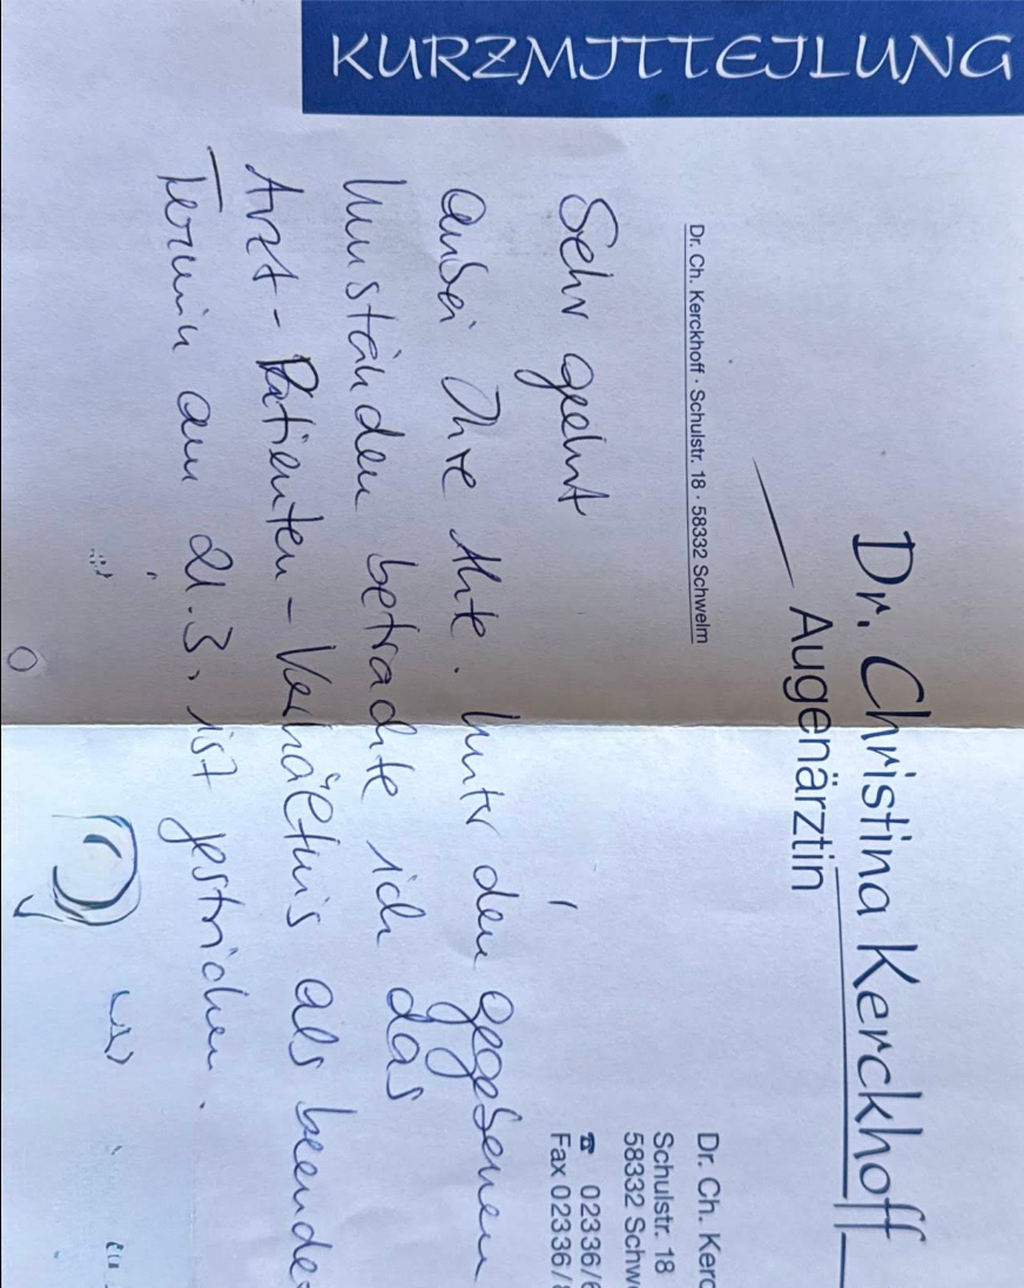 KURZMITTEILUNG
Dr. Christina Kerckhoff
Augenärztin
Dr. Ch. Kerckhoff · Schulstr. 18 · 58332 Schwelm
Dr. Ch. Kerc
Schulstr. 18
58332 Schw
☎ 02336/
Fax 02336/
Sehr geehrt
anbei Ihre Akte. Unter den gegebenen
Umständen betrachte ich das
Arzt-Patienten-Verhältnis als beendet
Termin am 21.3. ist gestrichen.